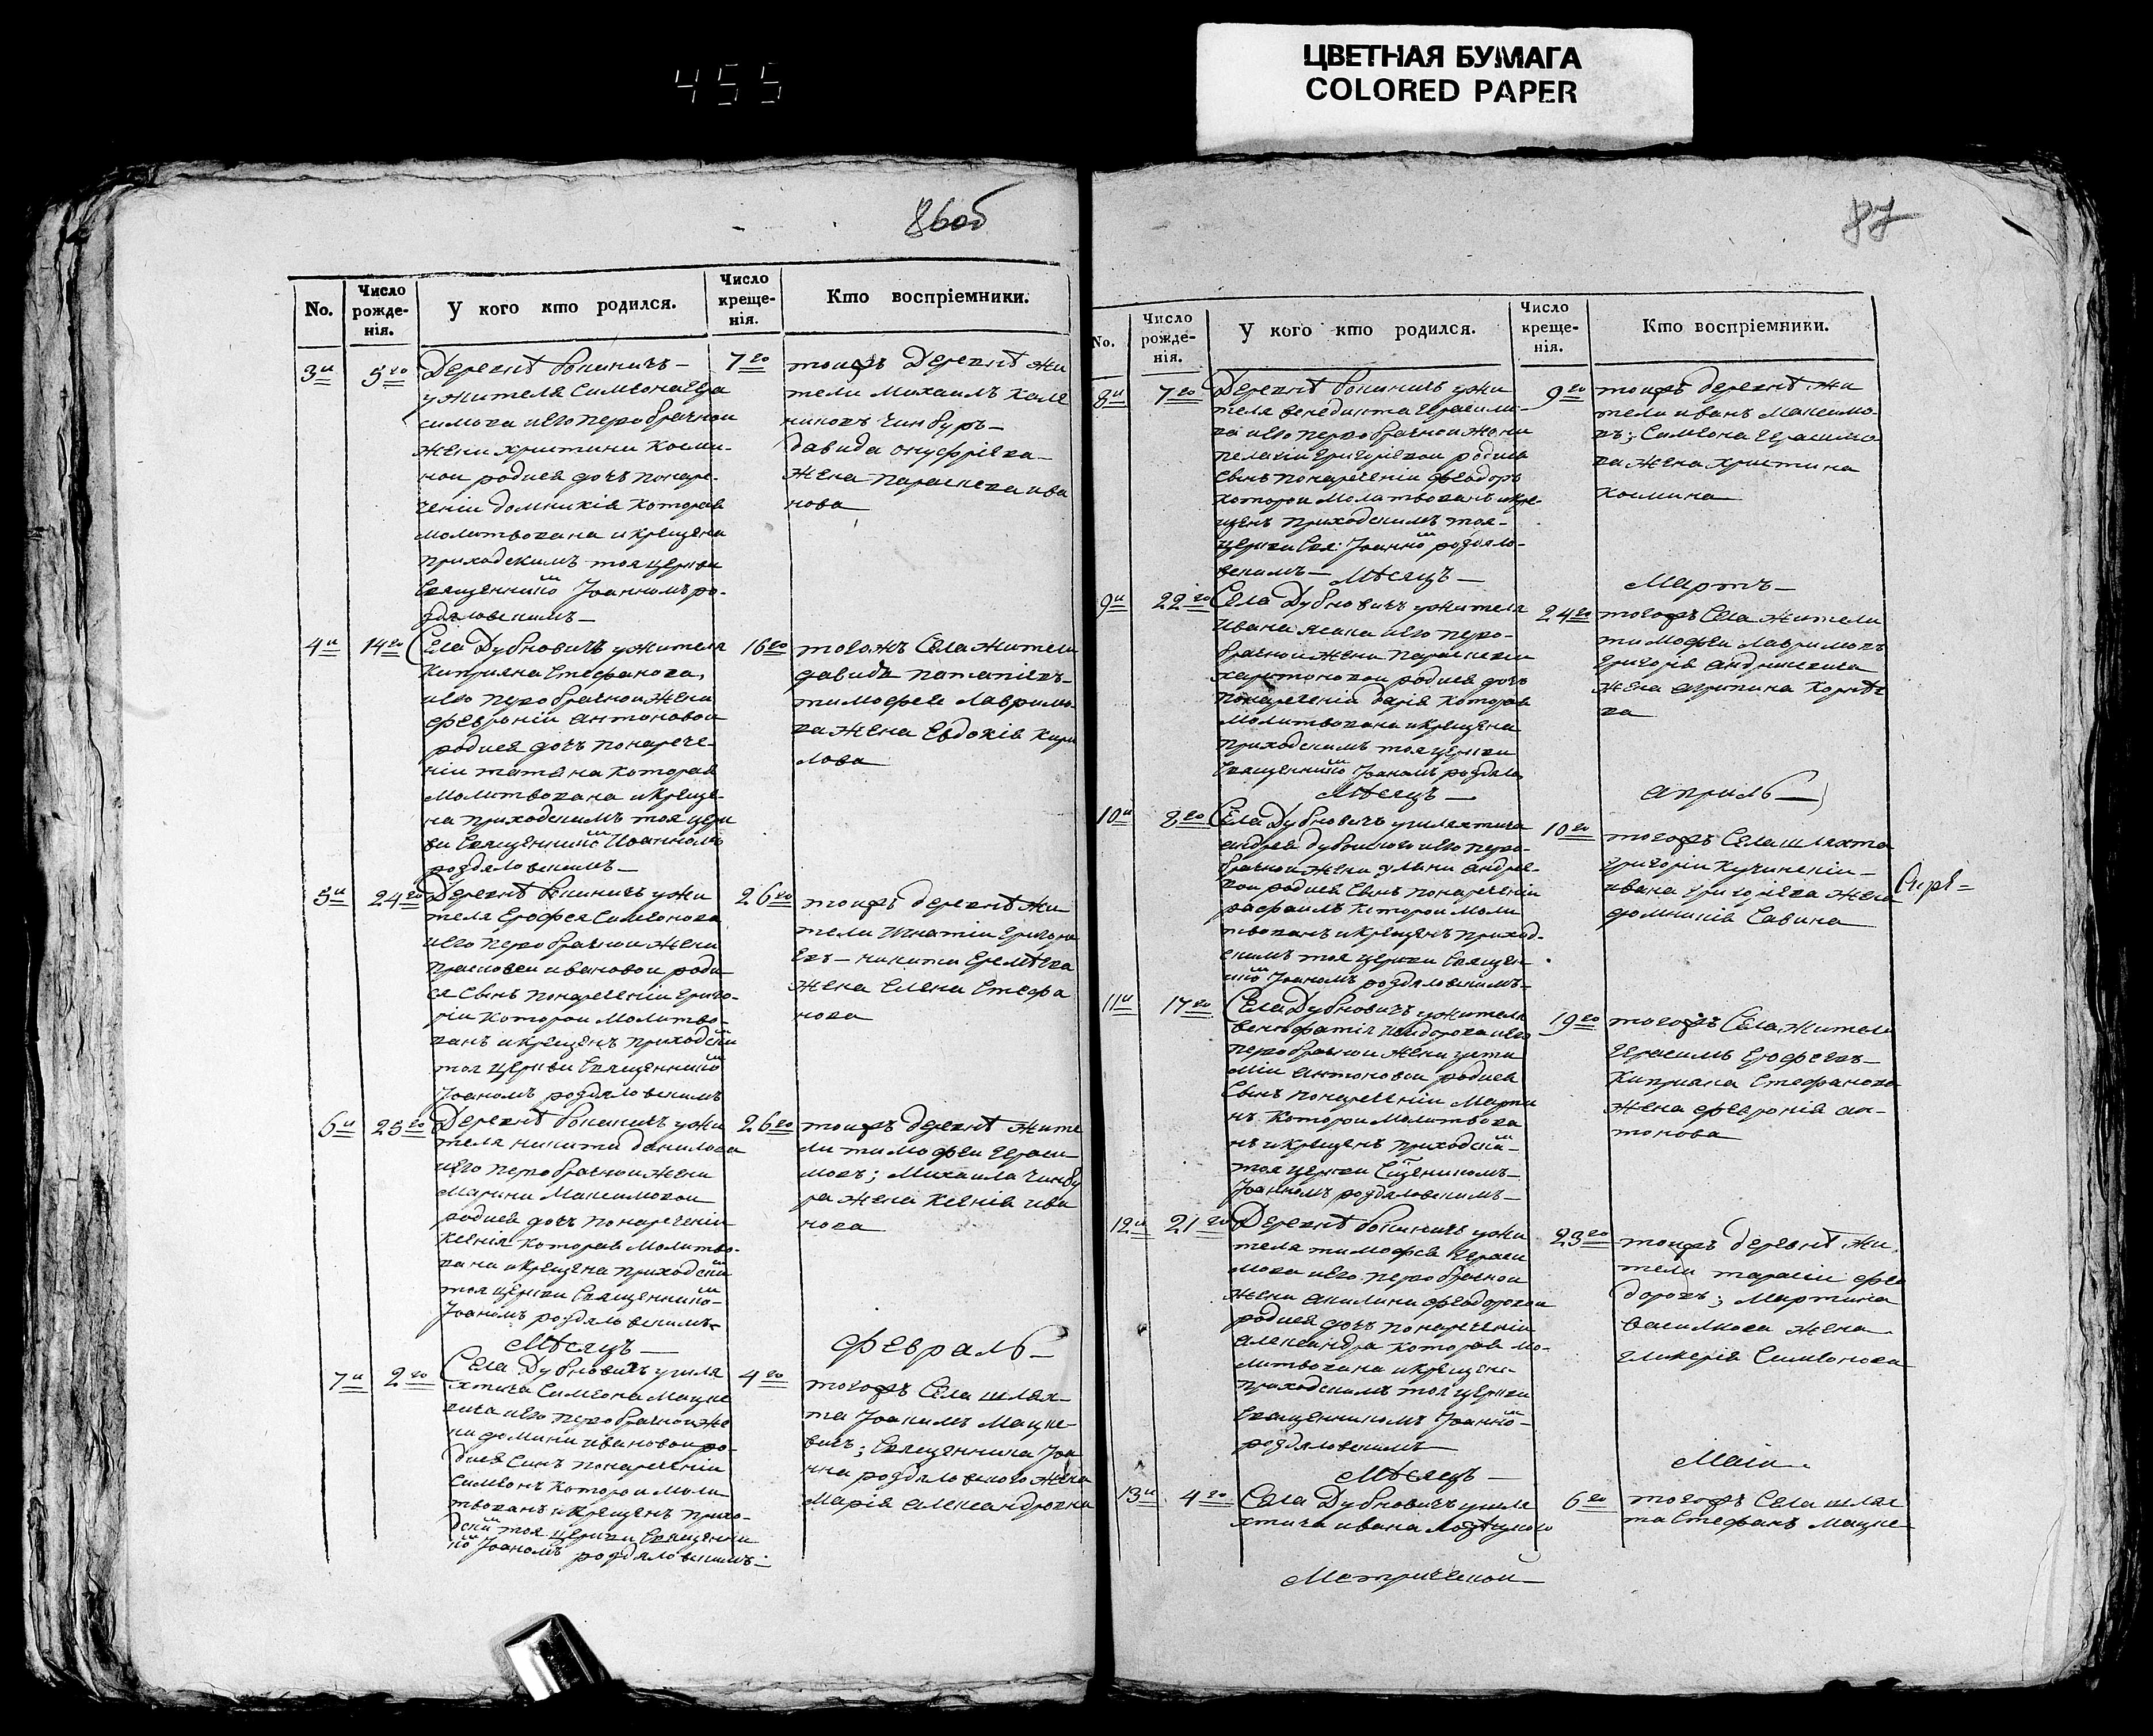 455
ЦВЕТНАЯ БУМАГА
COLORED PAPER
86об
No.
Число рожде-нія.
У кого кто родился.
Число креще-нія.
Кто воспріемники.
3й
5го
Деревнѣ
у жителя Симеона Гера
симова и его первобрачной
жени христини Косми-
ной родися дочь понаре-
ченіи домникія которая
молитвована и крещена
приходскимъ тоя церкви
Священникô Іоанномъ ро-
здяловскимъ—
7го
тоижъ Деревнѣ жи
тели Михаилъ Кале
никовъ Чинбуръ—
давида онуфріева—
жена параскева ива
нова
4й
14го
Села Дубновичъ у жителя
Киприяна Стефанова,
и его первобрачной жени
февроніи антоновой
родися дочь понарече-
ніи татяна которая
молитвована и креще-
на приходскимъ тоя церк
ви Священникô Иоанномъ
роздяловскимъ—
16го
тогожъ Села жители
давидъ потапіевъ—
тимофея Лавримо-
ва жена Евдокія Кири
лова
5й
24го
Деревнѣ
у жи
теля Ерофея Симеонова
и его первобрачной жени
прасковеи ивановой роди
ся Сынъ понареченіи григо-
ріи которой молитво-
ванъ и крещенъ приходски
тоя церкви Священникô
Іоаномъ роздяловскимъ
26го
тоижъ деревнѣ жи
тели игнатіи григори
евъ— никити Еремѣева
жена Елена Стефа
нова
6й
25го
Деревнѣ
у жи
теля никити данилова
и его первобрачной жени
Марини Максимовой
родися дочь понареченіи
Ксенія которая молитво-
вана и крещена приходски
тоя церкви Священникô—
Іоаномъ роздяловскимъ
26го
тоижъ деревнѣ жите
ли тимофеи гераси
мовъ; Михаила Чинбу
ра жена Ксенія ива
нова
Мѣсяцъ—
Февраль—
7й
2го
Села Дубновичъ у шля
хтича Симеона Мацке
вича и его первобрачной же
ни домини ивановой ро-
дися Синъ понареченіи
Симеонъ которой моли
твованъ и крещенъ прихо-
дски тоя церкви Священни
кô Іоаномъ роздяловскимъ—
4го
тогожъ Села шлях-
та Іоакимъ Мацке-
вичъ; Священника Іоа
нна роздяловского жена
Марія александровна
87
No.
Число рожде-нія.
У кого кто родился.
Число креще-нія.
Кто воспріемники.
8й
7го
Деревнѣ
у жи
теля венедикта Герасимо-
ва и его первобрачной жени
пелагіи григоріевой родися
Сынъ понареченіи феодоръ
которой молитвованъ и кре-
щенъ приходскимъ тоя—
церкви Свя: Іоаннô роздяло-
вскимъ—
9го
тоижъ деревнѣ жи
тели иванъ Максимо-
въ; Симеона герасимо
ва жена христина
Космина
Мѣсяцъ—
Мартъ—
9й
22го
Села Дубновичъ у жителя
Ивана
и его перво-
брачной жени параскевіи
харитоновой родися дочь
понареченіи дарія которая
молитвована и крещена
приходскимъ тоя церкви
Священникô Іоаномъ роздяло
24го
тогожъ Села жители
тимофеи лавримовъ
григорія андрикевича
жена агрипина Корнѣе
ва
Мѣсяцъ—
априль—
10й
8го
Села Дубновичъ у шляхтича
андрея дубойского и его перво-
брачной жени уляни андрее-
вой родися Сынъ понареченіи
рафаилъ которой моли
твованъ и крещенъ приход-
скимъ тоя церкви Священ-
никô Іоаномъ роздяловскимъ—
10го
тогожъ Села шляхта
григоріи Кучинскіи—
ивана григоріева жена
домникія Савина
11й
17го
Села Дубновичъ у жителя
венефатія
и его
первобрачной жени
міи антоновой родися
Сынъ понареченіи Марти
нъ которой молитвова
нъ и крещенъ приходски—
тоя церкви Сщеникомъ—
Іоанномъ роздяловскимъ—
19го
тогожъ Села жители
герасимъ Ерофеевъ—
Киприяна Стефанова
жена февронія ан-
тонова
12й
21го
Деревнѣ
у жи
теля тимофея гераси
мова и его первобрачной
жени акилини феодоровой
родися дочь понареченіи
александра которая мо-
литвована и крещена
приходскимъ тоя церкви
Священникомъ Іоаннô—
роздяловскимъ
23го
тоижъ деревнѣ жи
тели тарасіи фео
доровъ; Мартина
Василкова жена
гликерія Симеонова
Мѣсяцъ—
Маіи.
13й
4го
Села Дубновичъ у шля
хтича ивана
6го
тогожъ Села шлях
та Стефанъ Мацке
Метрической—